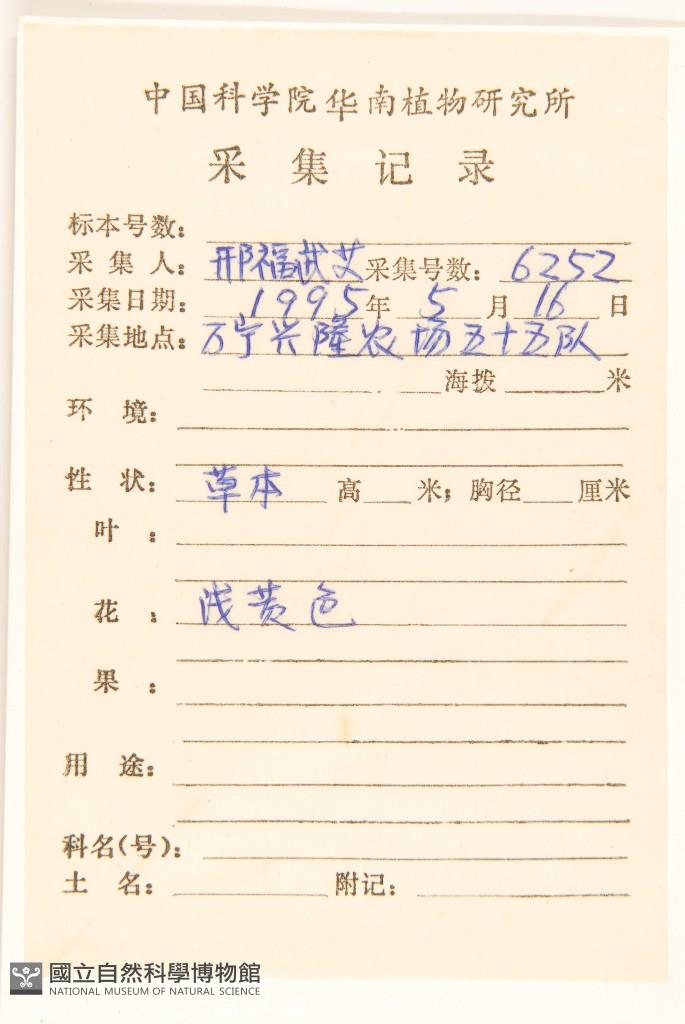 中国科学院华南植物研究所
采集记录
标本号数:
采集人: 邢福武 艾 采集号数: 6252
采集日期: 1995年 5 月 16 日
采集地点: 万宁兴隆农场五十五队
海拨 米
环境:
性状: 草本 高 米; 胸径 厘米
叶:
花: 浅黄色
果:
用途:
科名(号):
土名: 附记:
國立自然科學博物館
NATIONAL MUSEUM OF NATURAL SCIENCE